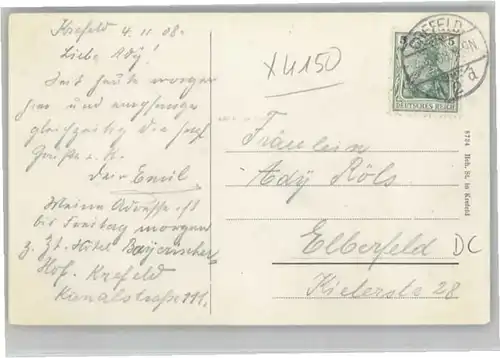 Krefeld 4. 11 08.
Liebe Ady!
Seit heute morgen
hier und empfange
gleichzeitig die herzl.
Grüße u. K.
dein Emil
Meine Adresse ist
bis Freitag morgen
z. Zt. Hotel Bayrischer
Hof. Krefeld
Kanalstraße 111.
x4150
CREFELD
5
DEUTSCHES REICH
Fräulein
Ady Röls
Elberfeld
Kielerstr 28
DC
8724 Hch. St. in Krefeld